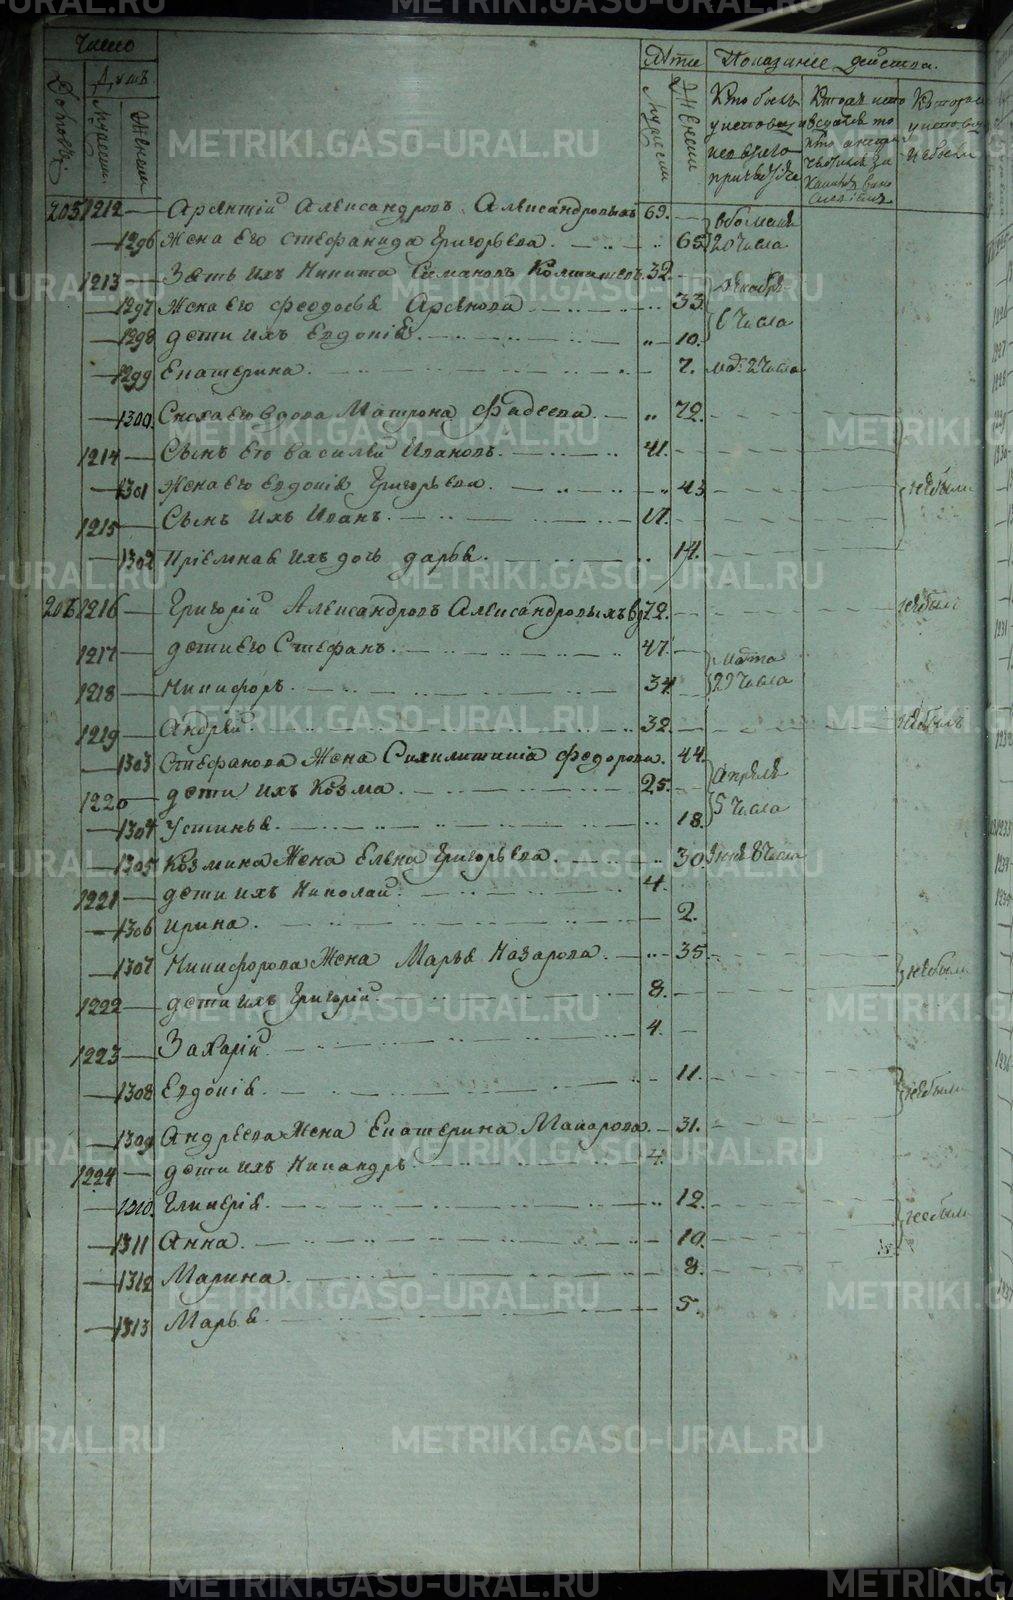 Число
Лѣта
Показаніе действа.
Дворовъ
Душъ
мужеск.
женски
мужески
женски
Кто былъ у исповѣди и св. причастія
Кто
Которые у исповѣди небыли
205 1212 — Арсентій Александровъ Александровыхъ 69.
1296 Жена его Стефанида Григорьева. 65. 20 Числа
1213 — Зять ихъ Никита Симановъ Колташевъ. 32 Декабря
1297 Жена его Феодосья Арсенова 33
1298 дети ихъ Евдокія. 10. 6 Числа
1299 Екатерина. 7. 2 Числа
1300. Сноха его вдова Матрона Фадеева. 72.
1214 — Сынъ его Василей Ивановъ. 41.
1301 Жена его Евдокія Григорьева. 43 небыли
1215 — Сынъ ихъ Иванъ. 17.
1302 Пріемная ихъ дочь Дарья. 14.
206 1216 — Григорій Александровъ Александровыхъ вд 72. небылъ
1217 — дети его Стефанъ. 47. Марта
1218 — Никифоръ. 34 29 Числа
1219 — Андрей 32. небылъ
1303 Стефанова Жена Сихлитикія Федорова. 44. Апреля
1220 — дети ихъ Козма. 25.
1304 Устинья. 18. 5 Числа
1305 Козмина Жена Елена Григорьева. 30. 8 Числа
1221 — дети ихъ Николай. 4.
1306 Ирина. 2.
1307 Никифорова Жена Марья Назарова. 35 небыли
1222 — дети ихъ Григорій 8.
1223 — Захарій. 4.
1308 Евдокія. 11. небыли
1309 Андреева Жена Екатерина Макарова. 31.
1224 — дети ихъ Никандръ. 4.
1310. Гликерія. 12. небыли
1311 Анна. 10.
1312 Марина. 8.
1313 Марья. 5.
METRIKI.GASO-URAL.RU